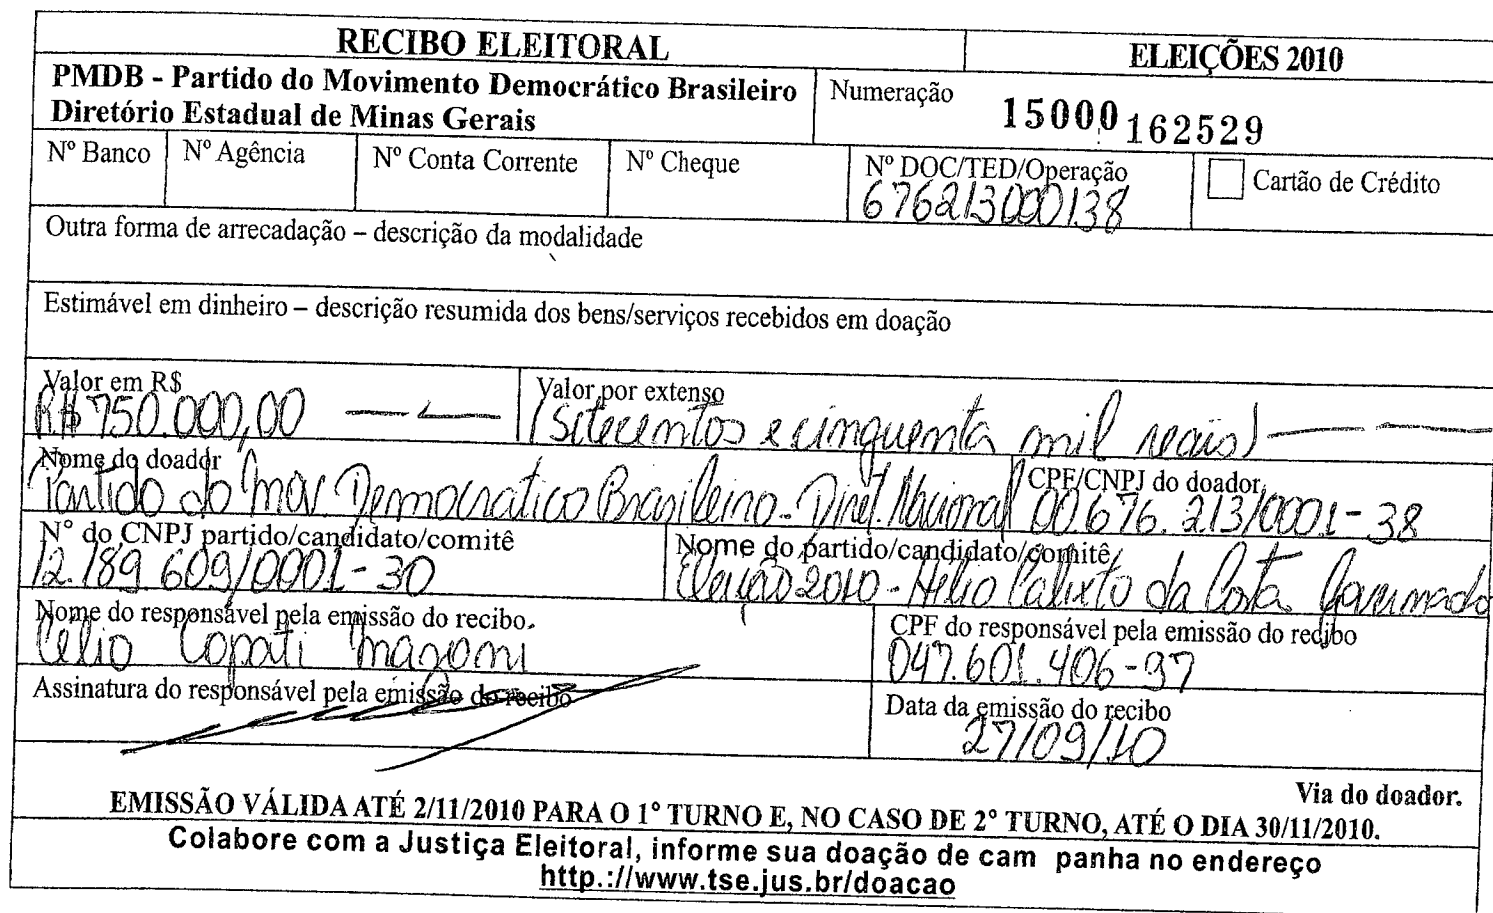 RECIBO ELEITORAL
ELEIÇÕES 2010
PMDB - Partido do Movimento Democrático Brasileiro
Diretório Estadual de Minas Gerais
Numeração
15000162529
Nº Banco
Nº Agência
Nº Conta Corrente
Nº Cheque
Nº DOC/TED/Operação
676213000138
Cartão de Crédito
Outra forma de arrecadação – descrição da modalidade
Estimável em dinheiro – descrição resumida dos bens/serviços recebidos em doação
Valor em R$
R$ 750.000,00
Valor por extenso
(Setecentos e cinquenta mil reais)
Nome do doador
Partido do Mov Democratico Brasileiro - Diret. Nacional
CPF/CNPJ do doador
00.676.213/0001-38
N° do CNPJ partido/candidato/comitê
12.189.609/0001-30
Nome do partido/candidato/comitê
Eleição 2010 - Hélio Calixto da Costa Governado
Nome do responsável pela emissão do recibo.
Célio Mazoni
CPF do responsável pela emissão do recibo
047.601.406-97
Assinatura do responsável pela emissão do recibo
Data da emissão do recibo
27/09/10
Via do doador.
EMISSÃO VÁLIDA ATÉ 2/11/2010 PARA O 1° TURNO E, NO CASO DE 2° TURNO, ATÉ O DIA 30/11/2010.
Colabore com a Justiça Eleitoral, informe sua doação de cam panha no endereço
http.://www.tse.jus.br/doacao